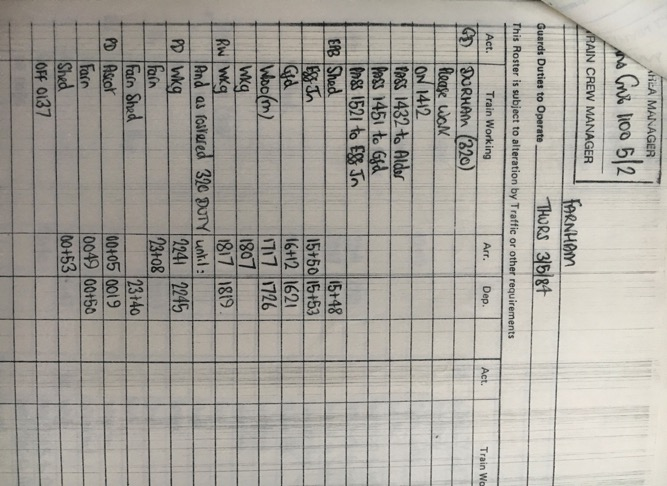 AREA MANAGER
1100 5/2
TRAIN CREW MANAGER
FARNHAM
Guards Duties to Operate THURS 3/5/84
This Roster is subject to alteration by Traffic or other requirements
Act. Train Working Arr. Dep. Act. Train Wo
GD DURHAM (320)
Please work
ON 1412
PASS 1432 to Alder
PASS 1451 to Gfd
PASS 1521 to Egg Jn
EPB Shed 15+48
Egg Jn 15+50 15+53
Gfd 16+12 1621
Wloo(m) 1717 1726
Wkg 1807
RW Wkg 1817 1819
And as rostered 320 DUTY until:
PD Wkg 2241 2245
Farn 23+08
Farn Shed 23+40
PD Ascot 00+05 0019
Farn 0049 00+50
Shed 00+53
OFF 0137